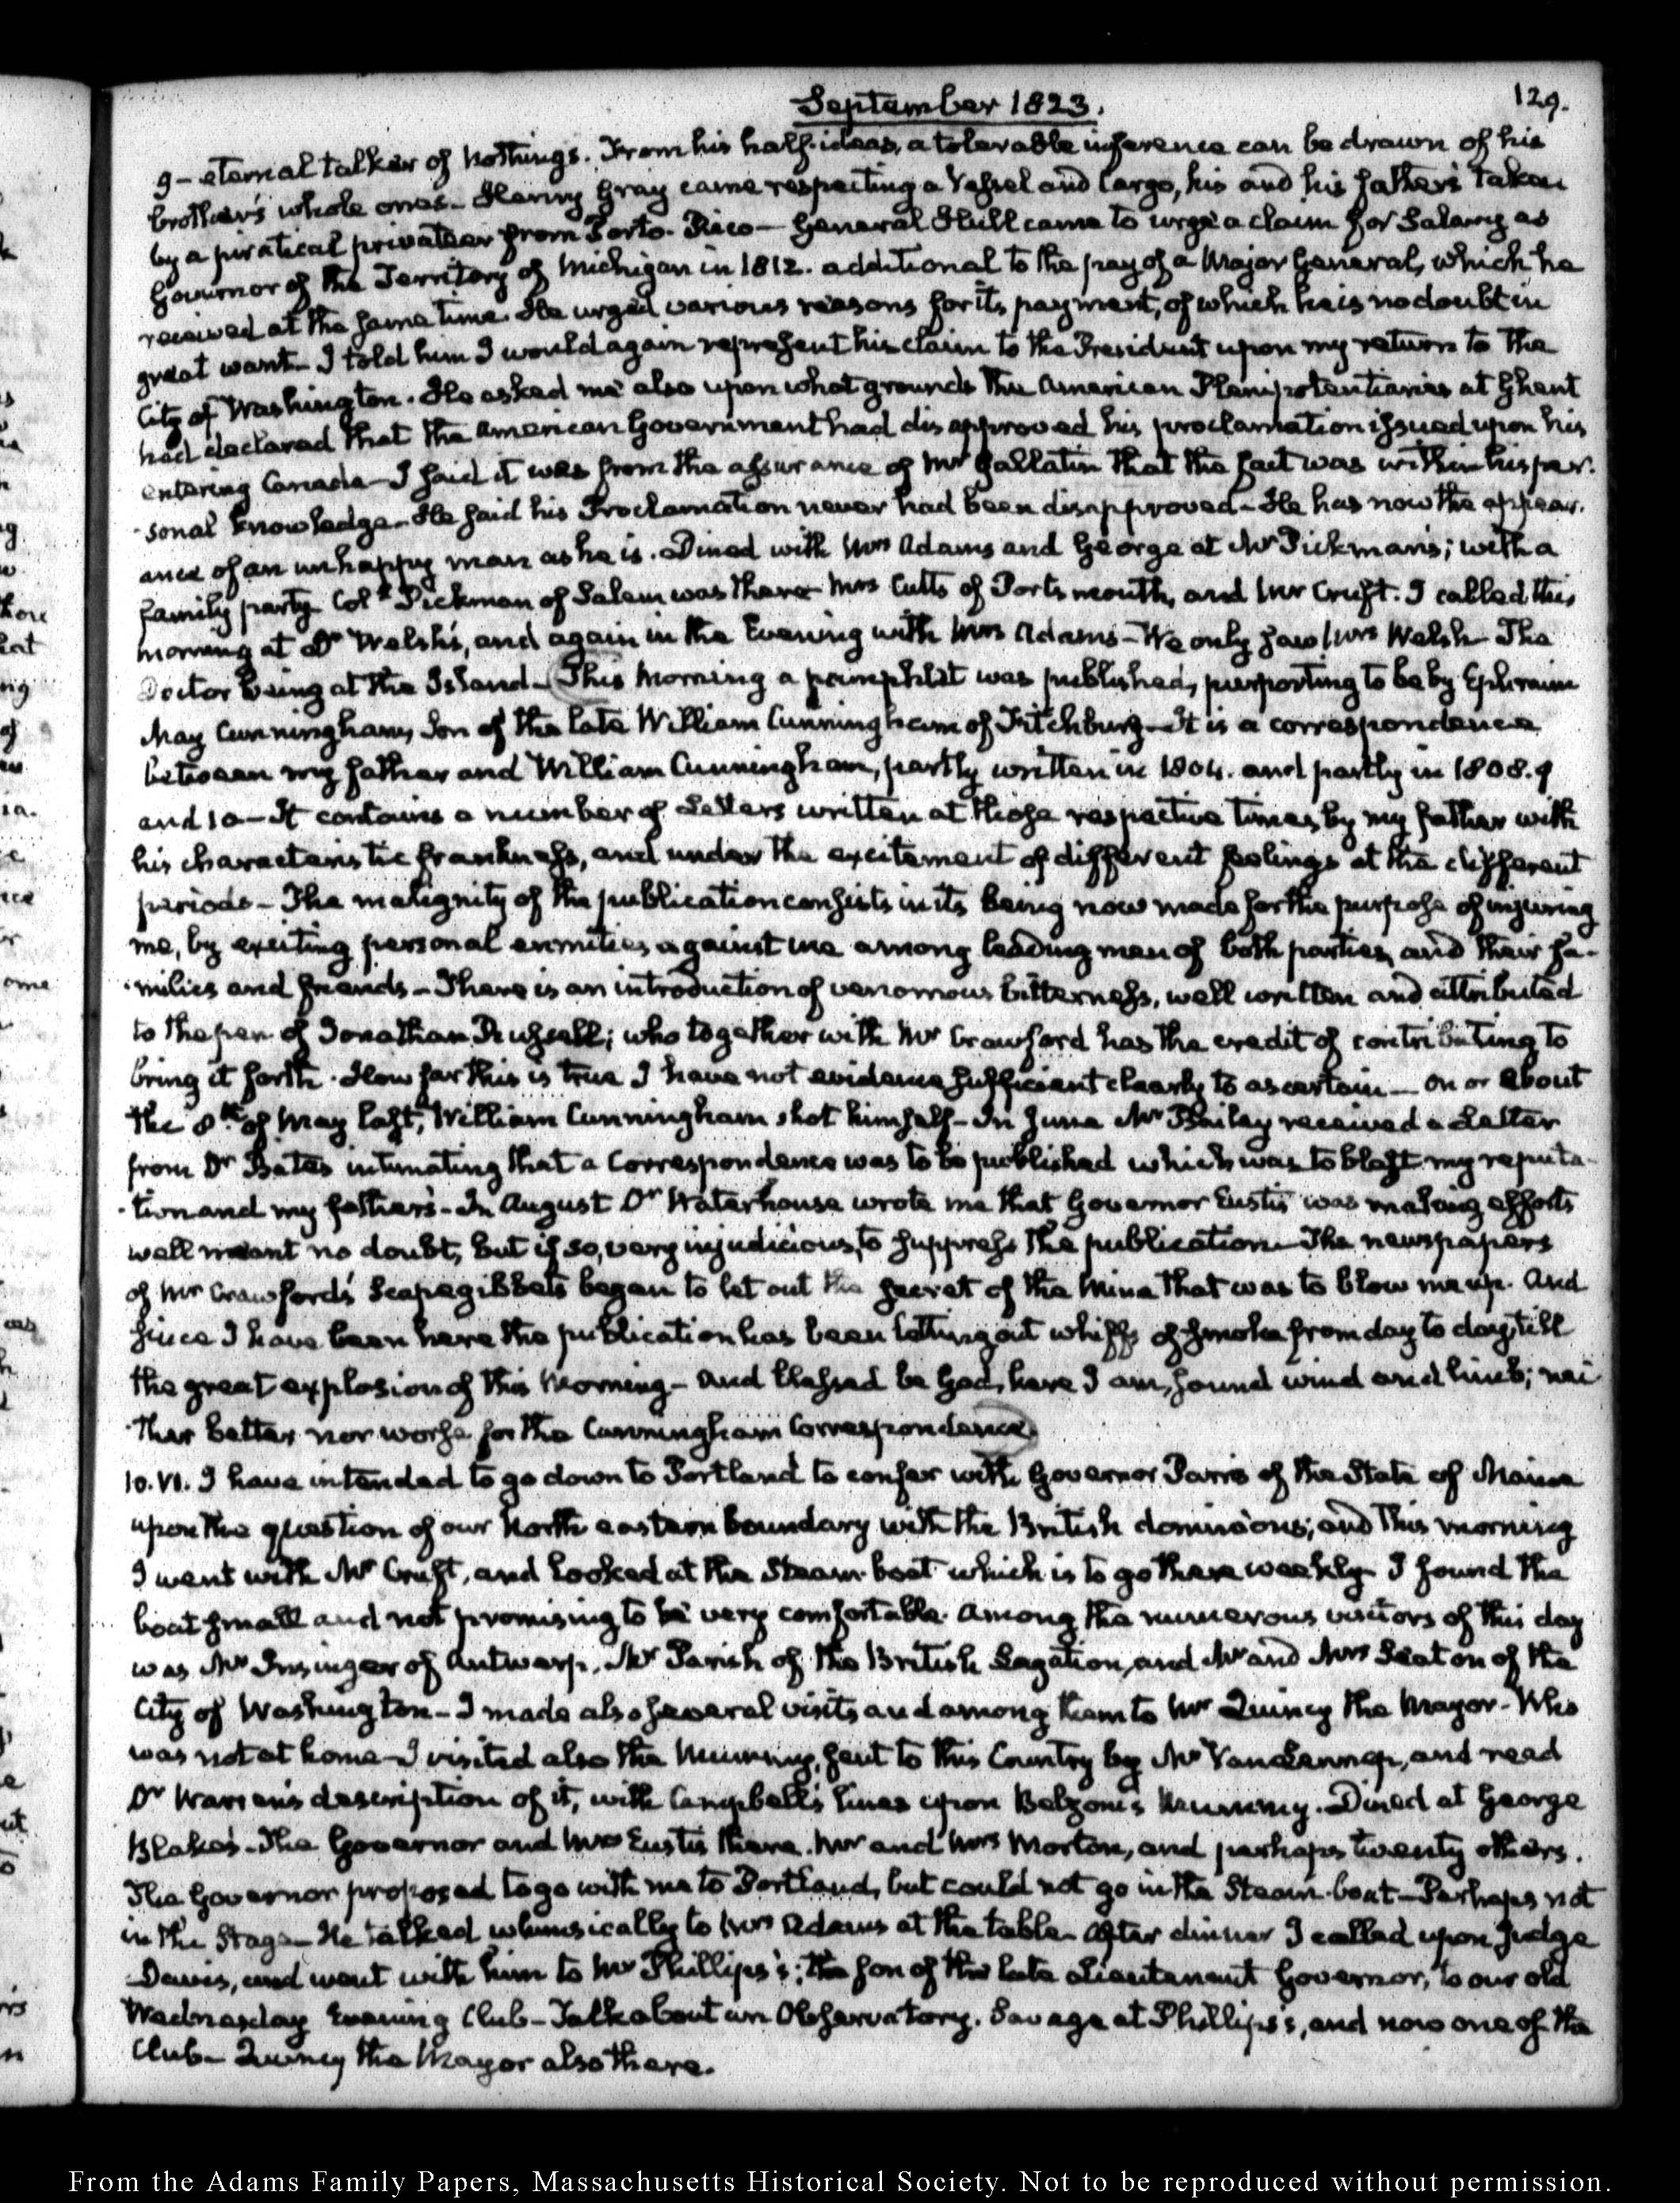 September 1823.
129.
9 - eternal talker of nothings. From his half-ideas, a tolerable inference can be drawn of his
brother's whole ones - Henry Gray came respecting a Vessel and Cargo, his and his father's taken
by a piratical privateer from Porto-Rico - General Hull came to urge a claim for Salary as
Governor of the Territory of Michigan in 1812. additional to the pay of a Major General, which he
received at the same time. He urged various reasons for its payment, of which he is no doubt in
great want - I told him I would again represent his claim to the President upon my return to the
City of Washington. He asked me also upon what grounds the American Plenipotentiaries at Ghent
had declared that the American Government had disapproved his proclamation issued upon his
entering Canada - I said it was from the assurance of Mr Gallatin that the fact was within his per-
-sonal knowledge - He said his Proclamation never had been disapproved - He has now the appear-
ance of an unhappy man as he is. Dined with Mrs Adams and George at Mr Pickman's; with a
family party - Coll Pickman of Salem was there - Mrs Cutts of Portsmouth, and Mr Cruft. I called this
morning at Dr Welsh's, and again in the Evening with Mrs Adams - We only saw Mrs Welsh - The
Doctor being at the Island - This Morning a pamphlet was published, purporting to be by Ephraim
May Cunningham, Son of the late William Cunningham of Fitchburg - It is a correspondence
between my father and William Cunningham, partly written in 1804. and partly in 1808. 9
and 10 - It contains a number of Letters written at those respective times, by my father with
his characteristic frankness, and under the excitement of different feelings at the different
periods - The malignity of the publication consists in its being now made for the purpose of injuring
me, by exciting personal enmities against me among leading men of both parties, and their fa-
-milies and friends - There is an introduction of venomous bitterness, well written and attributed
to the pen of Jonathan Russell; who together with Mr Crawford has the credit of contributing to
bring it forth. How far this is true I have not evidence sufficient clearly to ascertain - On or about
the 8th of May last, William Cunningham shot himself - In June Mr Bailey received a Letter
from Dr Bates intimating that a Correspondence was to be published which was to blast my reputa-
-tion and my father's - In August Dr Waterhouse wrote me that Governor Eustis was making efforts
well meant no doubt, but if so, very injudicious, to suppress the publication - The newspapers
of Mr Crawford's Scapegibbets began to let out the secret of the Mine that was to blow me up. And
since I have been here the publication has been letting out whiffs of smoke from day to day, till
the great explosion of this Morning - And blessed be God, here I am, sound wind and limb; nei-
-ther better nor worse for the Cunningham Correspondence.
10. VI. I have intended to go down to Portland to confer with Governor Parris of the State of Maine
upon the question of our North eastern boundary with the British dominions; and this morning
I went with Mr Cruft, and looked at the Steam-boat which is to go there weekly - I found the
boat small and not promising to be very comfortable. Among the numerous visitors of this day
was Mr Insinger of Antwerp, Mr Parish of the British Legation, and Mr and Mrs Seaton of the
City of Washington - I made also several visits and among them to Mr Quincy the Mayor - Who
was not at home - I visited also the Mummy, sent to this Country by Mr Van Lennep, and read
Dr Warren's description of it, with Campbell's lines upon Belzoni's Mummy. Dined at George
Blake's - The Governor and Mrs Eustis there. Mr and Mrs Morton, and perhaps twenty others.
The Governor proposed to go with me to Portland, but could not go in the Steam-boat - Perhaps not
in the Stage - He talked whimsically to Mrs Adams at the table - After dinner I called upon Judge
Davis, and went with him to Mr Phillips's; the son of the late Lieutenant Governor, to our old
Wednesday Evening Club - Talk about an Observatory. Savage at Phillips's, and now one of the
Club - Quincy the Mayor also there.
From the Adams Family Papers, Massachusetts Historical Society. Not to be reproduced without permission.